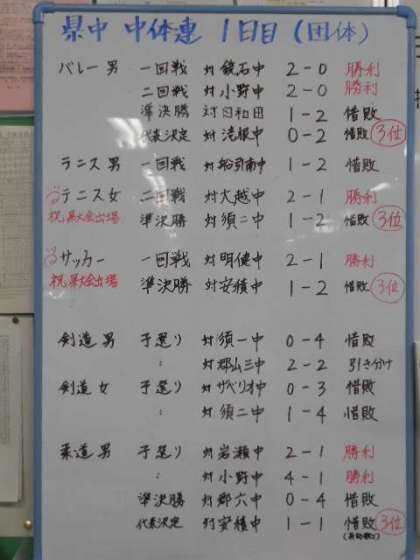 県中 中体連 1日目(団体)
バレー男 一回戦 対鏡石中 2-0 勝利
二回戦 対小野中 2-0 勝利
準決勝 対日和田 1-2 惜敗
代表決定 対滝根中 0-2 惜敗 3位
テニス男 一回戦 対船引南中 1-2 惜敗
テニス女 二回戦 対大越中 2-1 勝利
祝県大会出場 準決勝 対須二中 1-2 惜敗 3位
サッカー 一回戦 対明健中 2-1 勝利
祝県大会出場 準決勝 対安積中 1-2 惜敗 3位
剣道男 予選り 対須一中 0-4 惜敗
〃 対郡山三中 2-2 引き分け
剣道女 予選り 対ザベリオ中 0-3 惜敗
〃 対須二中 1-4 惜敗
柔道男 予選り 対岩瀬中 2-1 勝利
〃 対小野中 4-1 勝利
準決勝 対郷六中 0-4 惜敗
代表決定 対安積中 1-1 惜敗 3位